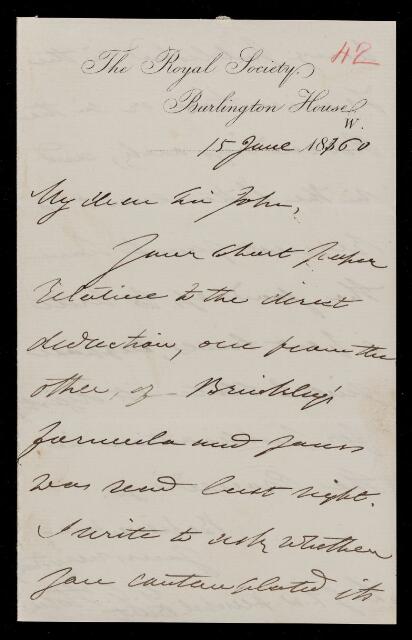 42
The Royal Society.
Burlington House,
W.
15 June 1860
My dear Sir John,
Your short paper
relative to the direct
deduction, one from the
other, of Brinkley's
formula and yours
was read last night.
I write to ask whether
you contemplated its